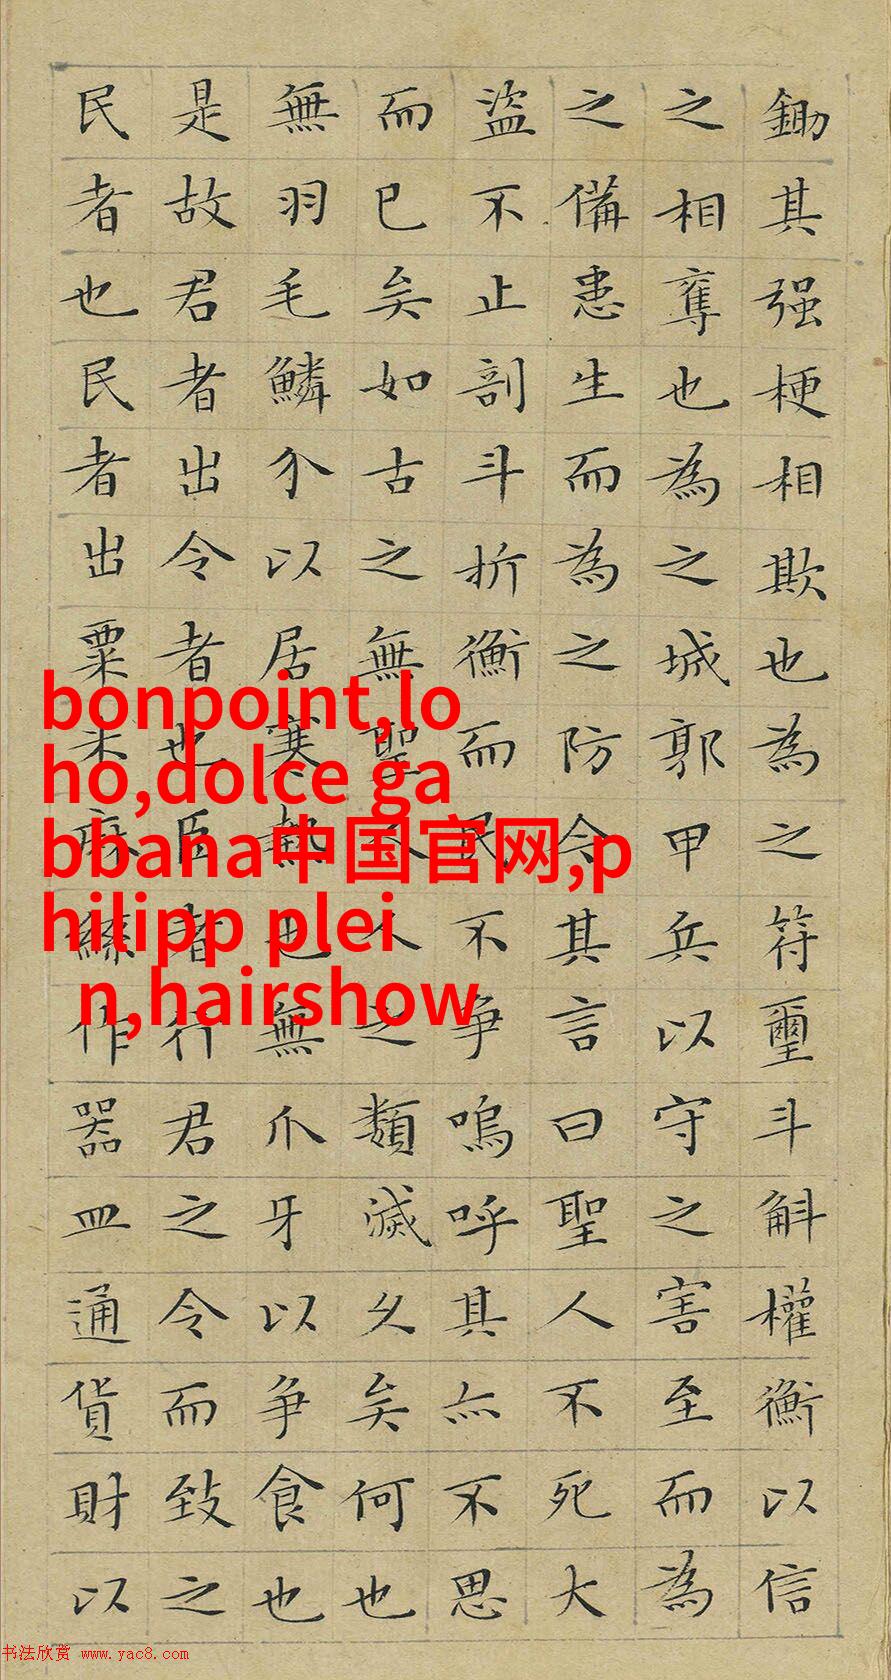 鋤其强梗相欺也為之符璽斗斛權衡以信
之相奪也為之城郭甲兵以守之害至而為
之備患生而為之防今其言曰聖人不死大
盜不止剖斗折衡而民不爭嗚呼其亦不思
而已矣如古之無聖人人之類滅久矣何也
無羽毛鱗介以居寒熱也無爪牙以爭食也
是故君者出令者也臣者行君之令而致之
民者也民者出粟米麻絲作器皿通貨財以
bonpoint,lo
ho,dolce ga
bbana中国官网,p
hilipp plei
n,hairshow
书法欣赏 www.yac8.com